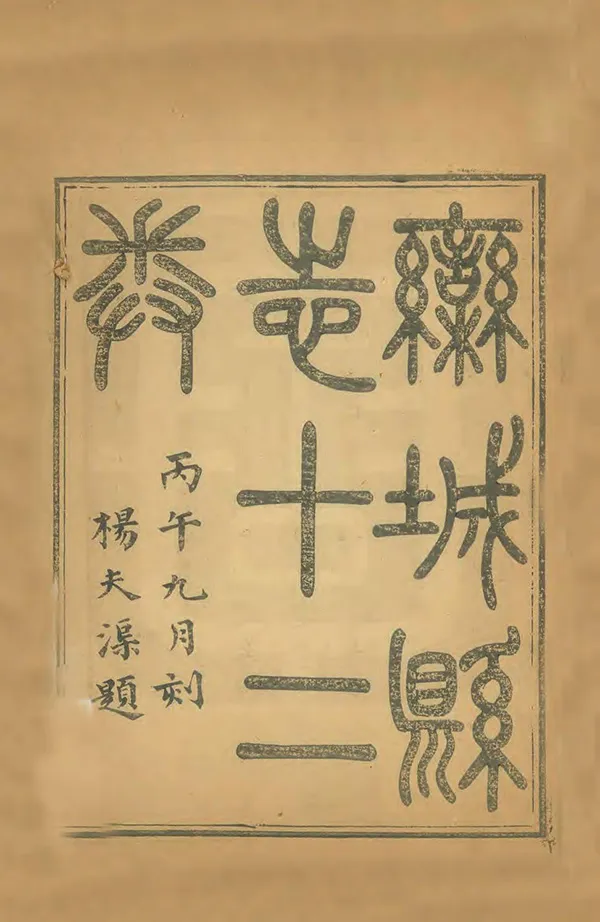 欒城縣
志十二
卷
丙午九月刻
楊夫渠題